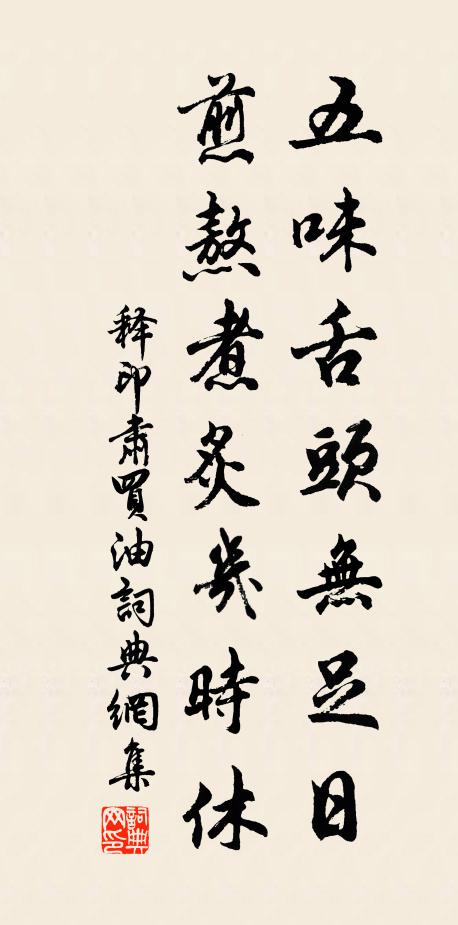 五味舌頭無足日
煎熬煮炙幾時休
释印肅買油詞典網集
詞典網印